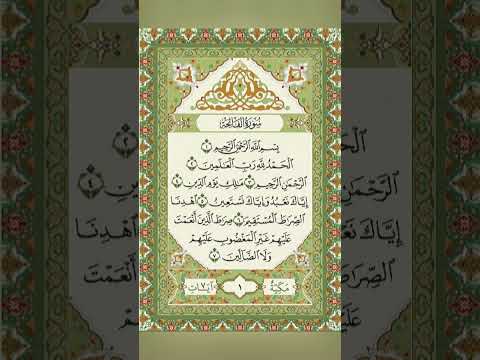 سُورَةُ الْفَاتِحَة
بِسْمِ ٱللَّهِ ٱلرَّحْمَٰنِ ٱلرَّحِيمِ ١
ٱلْحَمْدُ لِلَّهِ رَبِّ ٱلْعَٰلَمِينَ ٢
ٱلرَّحْمَٰنِ ٱلرَّحِيمِ ٣ مَٰلِكِ يَوْمِ ٱلدِّينِ ٤
إِيَّاكَ نَعْبُدُ وَإِيَّاكَ نَسْتَعِينُ ٥ ٱهْدِنَا
ٱلصِّرَٰطَ ٱلْمُسْتَقِيمَ ٦ صِرَٰطَ ٱلَّذِينَ أَنْعَمْتَ
عَلَيْهِمْ غَيْرِ ٱلْمَغْضُوبِ عَلَيْهِمْ
وَلَا ٱلضَّآلِّينَ ٧
مَكِّيَّة ١ آيَاتُهَا